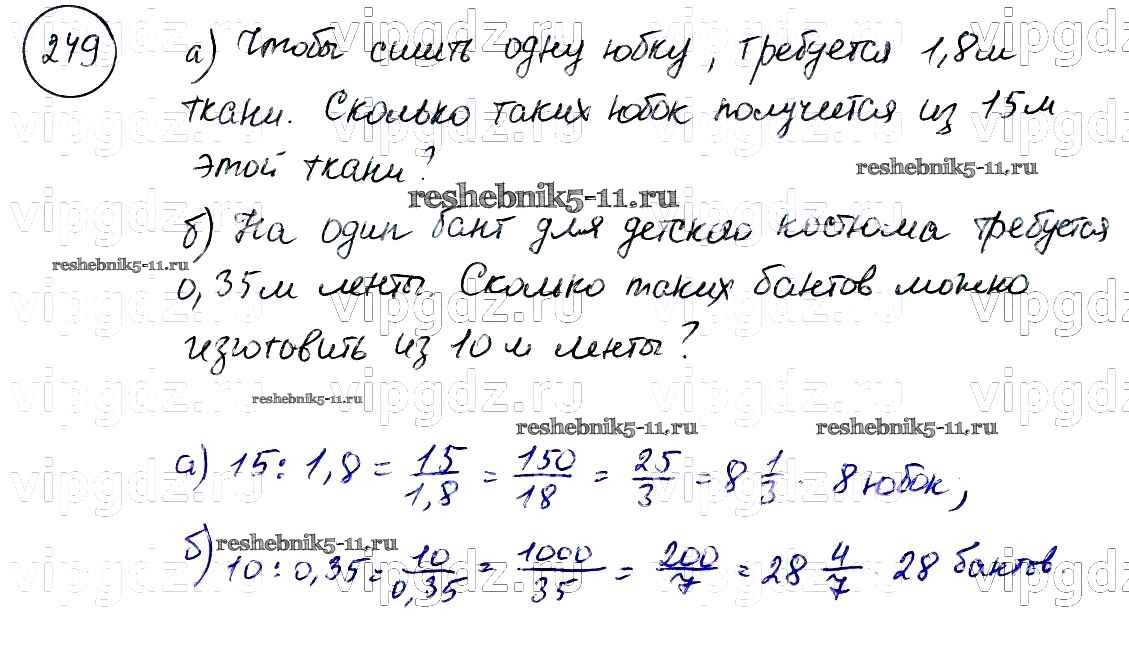 249
а) Чтобы сшить одну юбку, требуется 1,8м
ткани. Сколько таких юбок получится из 15м
этой ткани?
reshebnik5-11.ru
reshebnik5-11.ru
б) На один бант для детского костюма требуется
reshebnik5-11.ru
0,35м ленты. Сколько таких бантов можно
изготовить из 10 м ленты?
reshebnik5-11.ru
reshebnik5-11.ru reshebnik5-11.ru
а) 15 : 1,8 = 15/1,8 = 150/18 = 25/3 = 8 1/3. 8 юбок,
reshebnik5-11.ru
б) 10 : 0,35 = 10/0,35 = 1000/35 = 200/7 = 28 4/7 28 бантов
vipgdz.ru